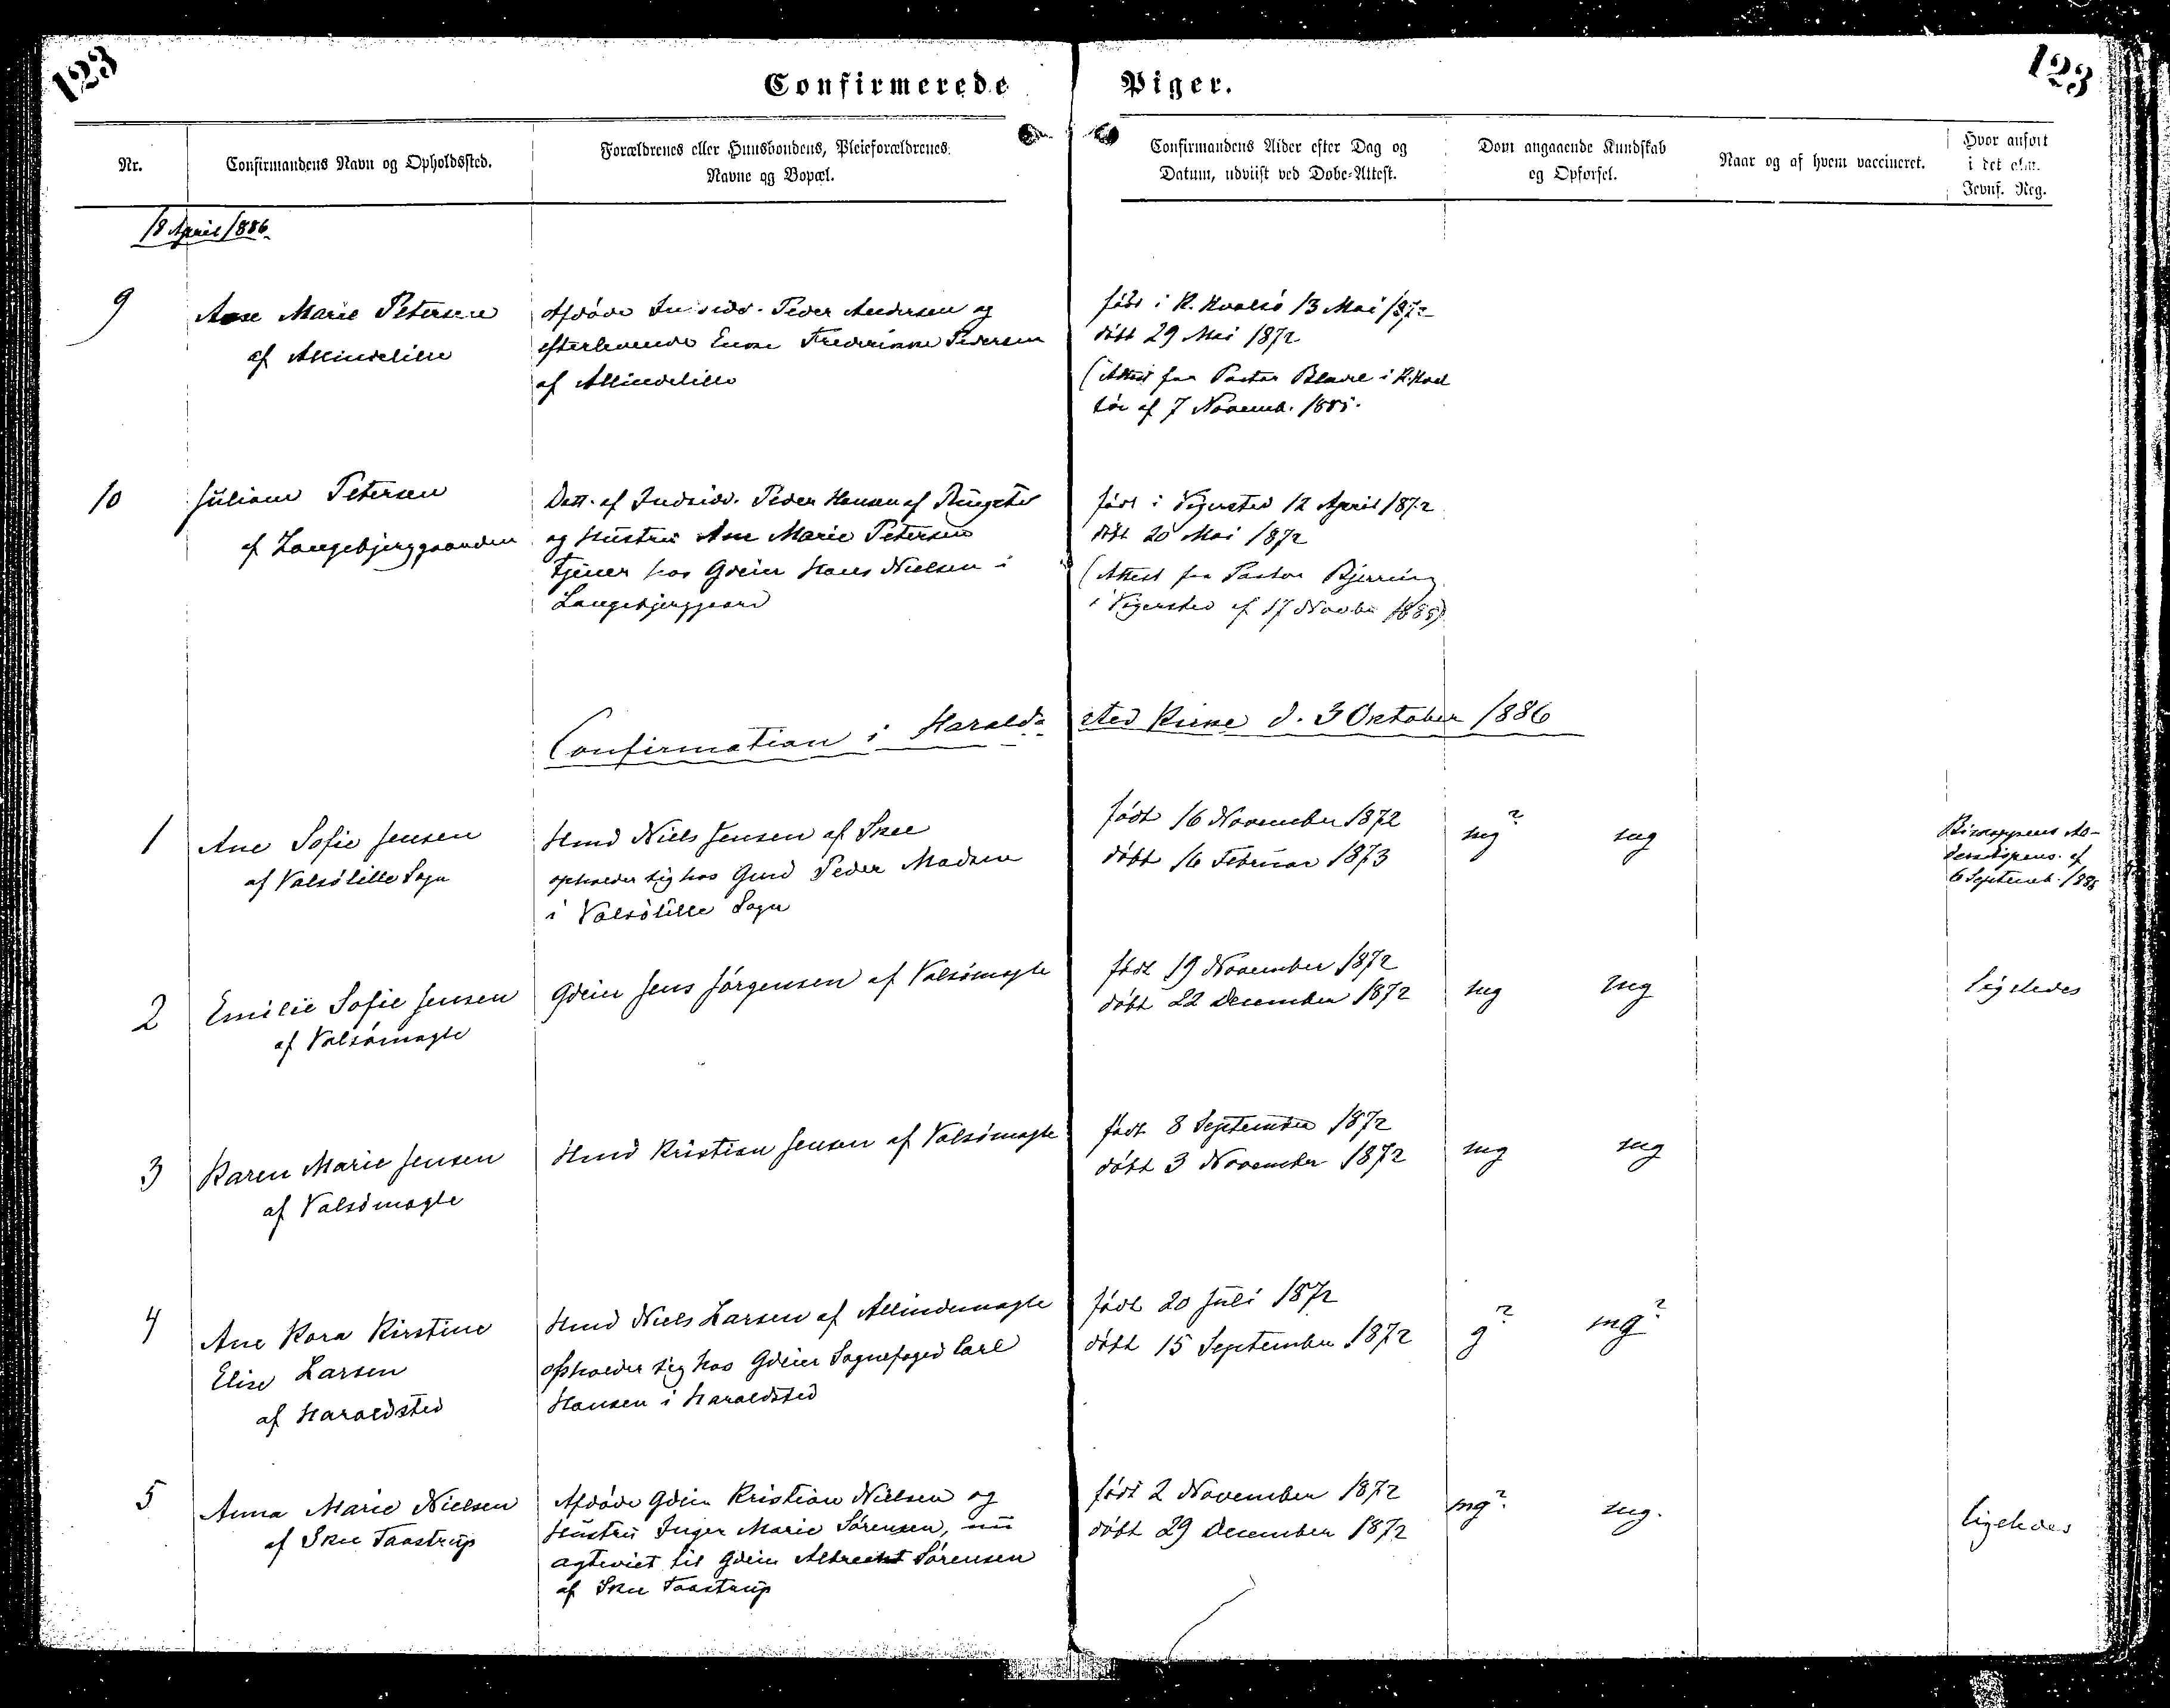 123
123
Confirmerede Piger.
Nr.
Confirmandens Navn og Opholdssted.
Forældrenes eller Huusbondens, Pleieforældrenes
Navne og Bopæl.
Confirmandens Alder efter Dag og
Datum, udviist ved Døbe-Attest.
Dom angaaende Kundskab
og Opførsel.
Naar og af hvem vaccineret.
Hvor anført
i det alm.
Jevnf. Reg.
18 April 1886
9
Ane Marie Petersen
af Allindelille
Afdøde Indsidd. Peder Andersen og
efterlevende Enke Frederikke Pedersen
af Allindelille
født i K. Hvalsø 13 Mai 1872
døbt 29 Mai 1872
(Attest fra Pastor i K. Hval
sø af 7 Novemb. 1885.
10
Juliane Petersen
af Langebjerggaarden
Datt. af Indsidd. Peder Hansen af Ringsted
og Hustru Ane Marie Petersen
tjener hos Gdeier Hans Nielsen i
Langebjerggaard
født i Vigersted 12 April 1872
døbt 20 Mai 1872
(Attest fra Pastor Bjerring
i Vigersted af 17 Novbr 1885)
Confirmation i Haraldsted Kirke d. 3 Oktober 1886
1
Ane Sofie Jensen
af Valsølille Sogn
Hmd Niels Jensen af Skee
opholder sig hos Gmd Peder Madsen
i Valsølille Sogn
født 16 November 1872
døbt 16 Februar 1873
mg?
mg
Biskoppens Al-
dersdispens. af
6 Septemb. 1886
2
Emilie Sofie Jensen
af Valsømagle
Gdeier Jens Jørgensen af Valsømagle
født 19 November 1872
døbt 22 December 1872
mg
mg
ligeledes
3
Karen Marie Jensen
af Valsømagle
Hmd Kristian Jensen af Valsømagle
født 8 September 1872
døbt 3 November 1872
mg
mg
4
Ane Kora Kirstine
Elise Larsen
af Haraldsted
Hmd Niels Larsen af Allindemagle
opholder sig hos Gdeier Sognefoged Carl
Hansen i Haraldsted
født 20 Juli 1872
døbt 15 September 1872
g?
mg?
5
Anna Marie Nielsen
af Skee Taastrup
Afdøde Gdeier Kristian Nielsen og
Hustru Inger Marie Sørensen, nu
ægteviet til Gdeier Albrecht Sørensen
af Skee Taastrup
født 2 November 1872
døbt 29 December 1872
mg?
mg.
ligeledes